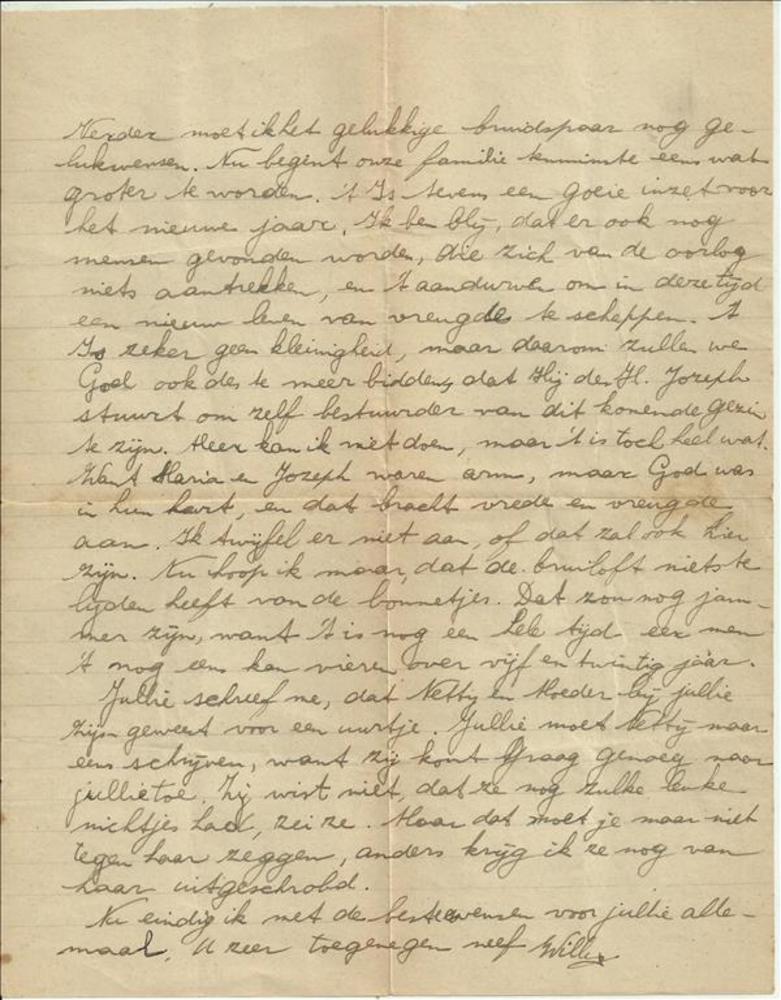 Verder moet ik het gelukkige bruidspaar nog ge-
lukwensen. Nu begint onze familie tenminste eens wat
groter te worden. 't Is tevens een goeie inzet voor
het nieuwe jaar. Ik ben blij, dat er ook nog
mensen gevonden worden, die zich van de oorlog
niets aantrekken, en 't aandurven om in deze tijd
een nieuw leven van vreugde te scheppen. 't
Is zeker geen kleinigheid, maar daarom zullen we
God ook des te meer bidden, dat Hij de H. Jozeph
stuurt om zelf bestuurder van dit komende gezin
te zijn. Meer kan ik niet doen, maar 't is toch heel wat.
Want Maria en Jozeph waren arm, maar God was
in hun hart, en dat bracht vrede en vreugde
aan. Ik twijfel er niet aan, of dat zal ook hier
zijn. Nu hoop ik maar, dat de bruiloft niets te
lijden heeft van de bonnetjes. Dat zou nog jam-
mer zijn, want 't is nog een hele tijd eer men
't nog eens kan vieren over vijf en twintig jaar.
Jullie schreef me, dat Netty en Moeder bij jullie
zijn geweest voor een uurtje. Jullie moet Netty maar
eens schrijven, want zij komt graag genoeg naar
jullie toe. Zij wist niet, dat ze nog zulke leuke
nichtjes had, zei ze. Maar dat moet je maar niet
tegen haar zeggen, anders krijg ik ze nog van
haar uitgeschrobd.
Nu eindig ik met de beste wensen voor jullie alle-
maal, U zeer toegenegen neef Willy